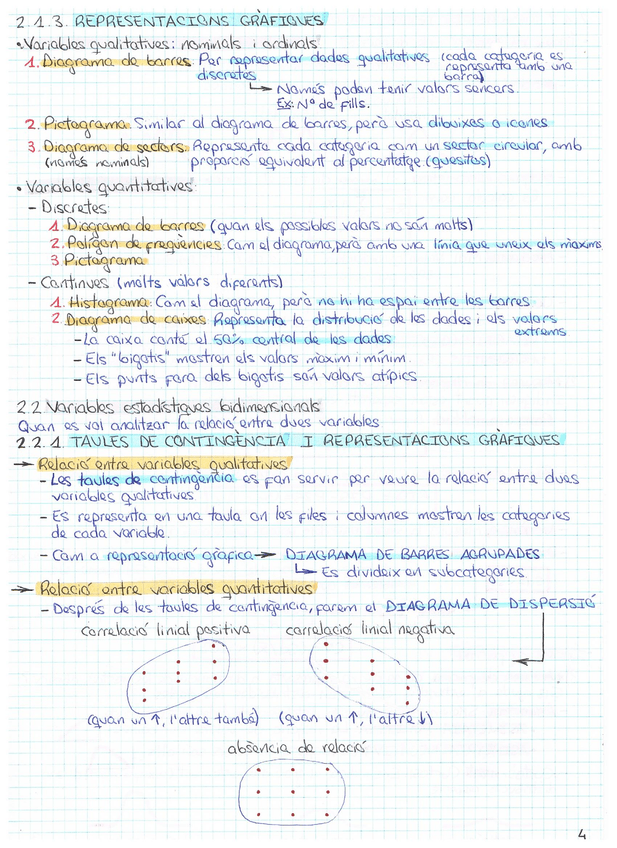 2.1.3. REPRESENTACIONS GRÀFIQUES
• Variables qualitatives: nominals i ordinals
1. Diagrama de barres: Per representar dades qualitatives (cada categoria es representa amb una barra)
discretes
↳ Només poden tenir valors sencers.
Ex: Nº de fills.
2. Pictograma: Similar al diagrama de barres, però usa dibuixos o icones
3. Diagrama de sectors: Representa cada categoria com un sector circular, amb
(només nominals) proporció equivalent al percentatge (quesitos)
• Variables quantitatives:
- Discretes:
1. Diagrama de barres (quan els possibles valors no són molts)
2. Polígon de freqüències: Com el diagrama, però amb una línia que uneix els màxims
3 Pictograma
- Contínues (molts valors diferents)
1. Histograma: Com el diagrama, però no hi ha espai entre les barres
2. Diagrama de caixes: Representa la distribució de les dades i els valors extrems
- La caixa conté el 50% central de les dades
- Els "bigotis" mostren els valors màxim i mínim.
- Els punts fora dels bigotis són valors atípics.
2.2 Variables estadístiques bidimensionals
Quan es vol analitzar la relació entre dues variables
2.2.1. TAULES DE CONTINGÈNCIA I REPRESENTACIONS GRÀFIQUES
→ Relació entre variables qualitatives
- Les taules de contingència es fan servir per veure la relació entre dues
variables qualitatives
- Es representa en una taula on les files i columnes mostren les categories
de cada variable.
- Com a representació gràfica → DIAGRAMA DE BARRES AGRUPADES
↳ Es divideix en subcategories
→ Relació entre variables quantitatives
- Després de les taules de contingència, farem el DIAGRAMA DE DISPERSIÓ
correlació linial positiva correlació linial negativa
(quan un ↑, l'altre també) (quan un ↑, l'altre ↓)
absència de relació
4